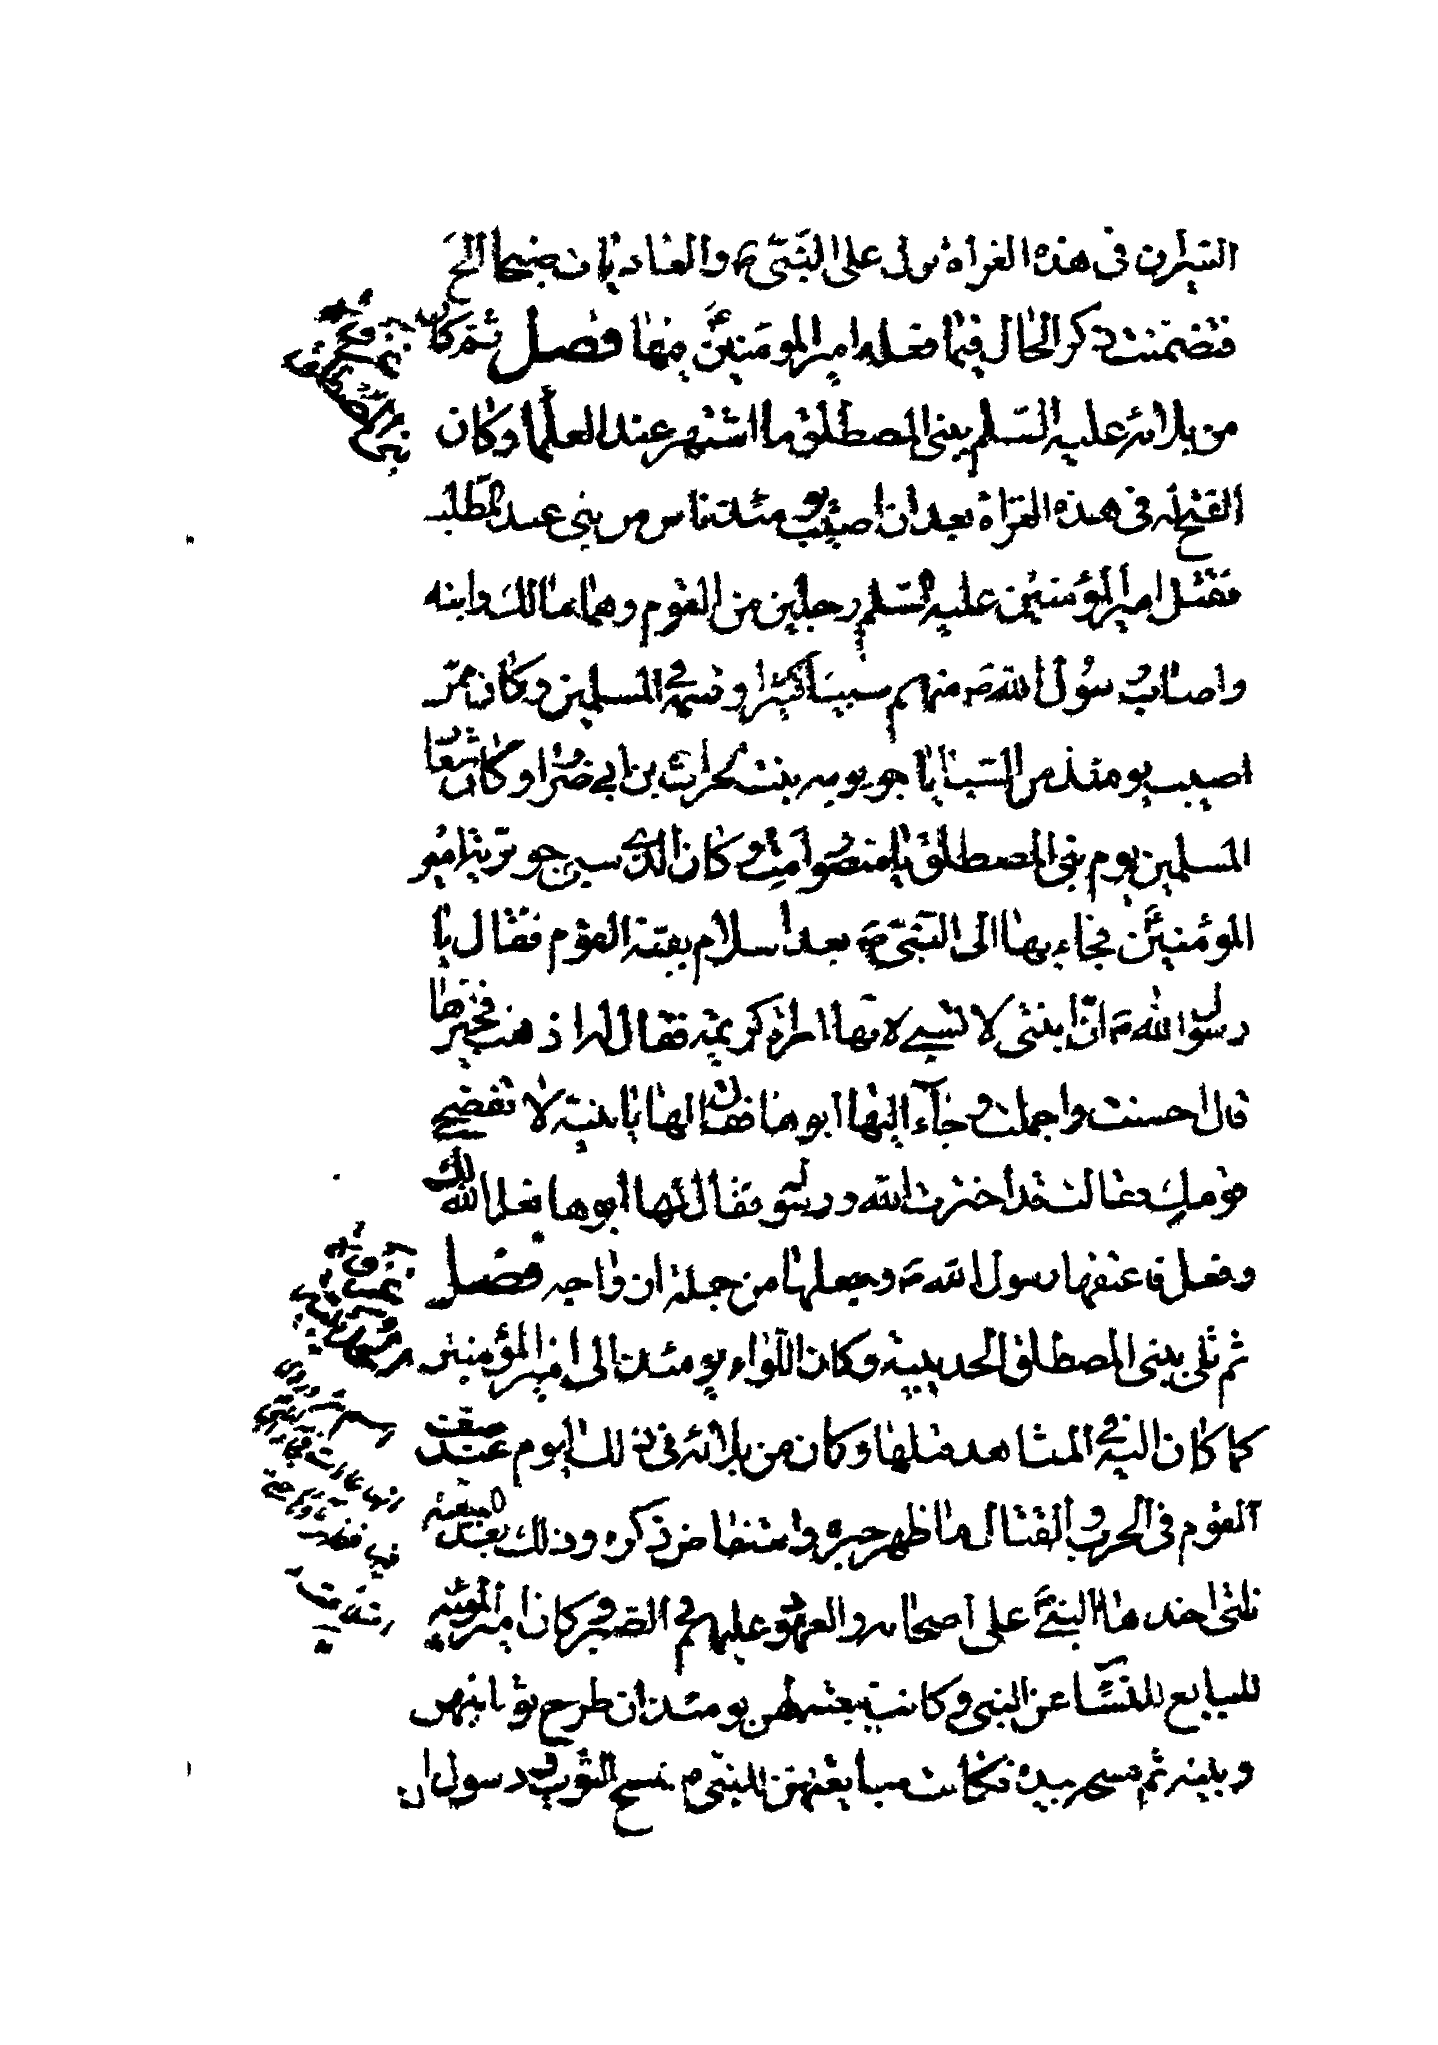 السير ان في هذه الغزاة نزل على النبي ص والعاديات ضبحا الخ
فتضمنت ذكر الحال فيما فعله امير المؤمنين ع فيها فصل ثم كان
من بلائه عليه السلم ببني المصطلق ما اشتهر عند العلما وكان
الفتح له في هذه الغزاة بعد ان اصيب يومئذ ناس من بني عبد المطلب
فقتل امير المؤمنين عليه السلم رجلين من القوم وهما مالك وابنه
واصاب رسول الله ص منهم سبيا كثيرا وقسمه في المسلمين وكان ممن
اصيب يومئذ من السبايا جويريه بنت الحرث بن ابي ضرار وكان شعار
المسلمين يوم بني المصطلق يا منصور امت وكان الذي سبى جويرية امير
المؤمنين ع فجاء بها الى النبي ص بعد اسلام بقية القوم فقال يا
رسول الله ص ان ابنتي لا تسبى لانها امراة كريمة فقال له اذهب فخيرها
قال احسنت واجملت وجاء اليها ابوها فقال لها يا بنية لا تفضحي
قومك فقالت قد اخترت الله ورسوله فقال لها ابوها فعل الله بك
وفعل فاعتقها رسول الله ص وجعلها من جملة ازواجه فصل
ثم تلى بني المصطلق الحديبية وكان اللواء يومئذ الى امير المؤمنين
كما كان اليه في المشاهد قبلها وكان من بلائه في ذلك اليوم عند صف
القوم في الحرب والقتال ما ظهر خبره واستفاض ذكره وذلك بعد البيعة
التي اخذها النبي ص على اصحابه والعهود عليهم في الصبر وكان امير المؤمنين
المبايع للنساء عن النبي وكانت بيعته لهن يومئذ ان طرح ثوبا بينهن
وبينه ثم مسحه بيده فكانت مبايعتهن للنبي ص بمسح الثوب ورسول ا